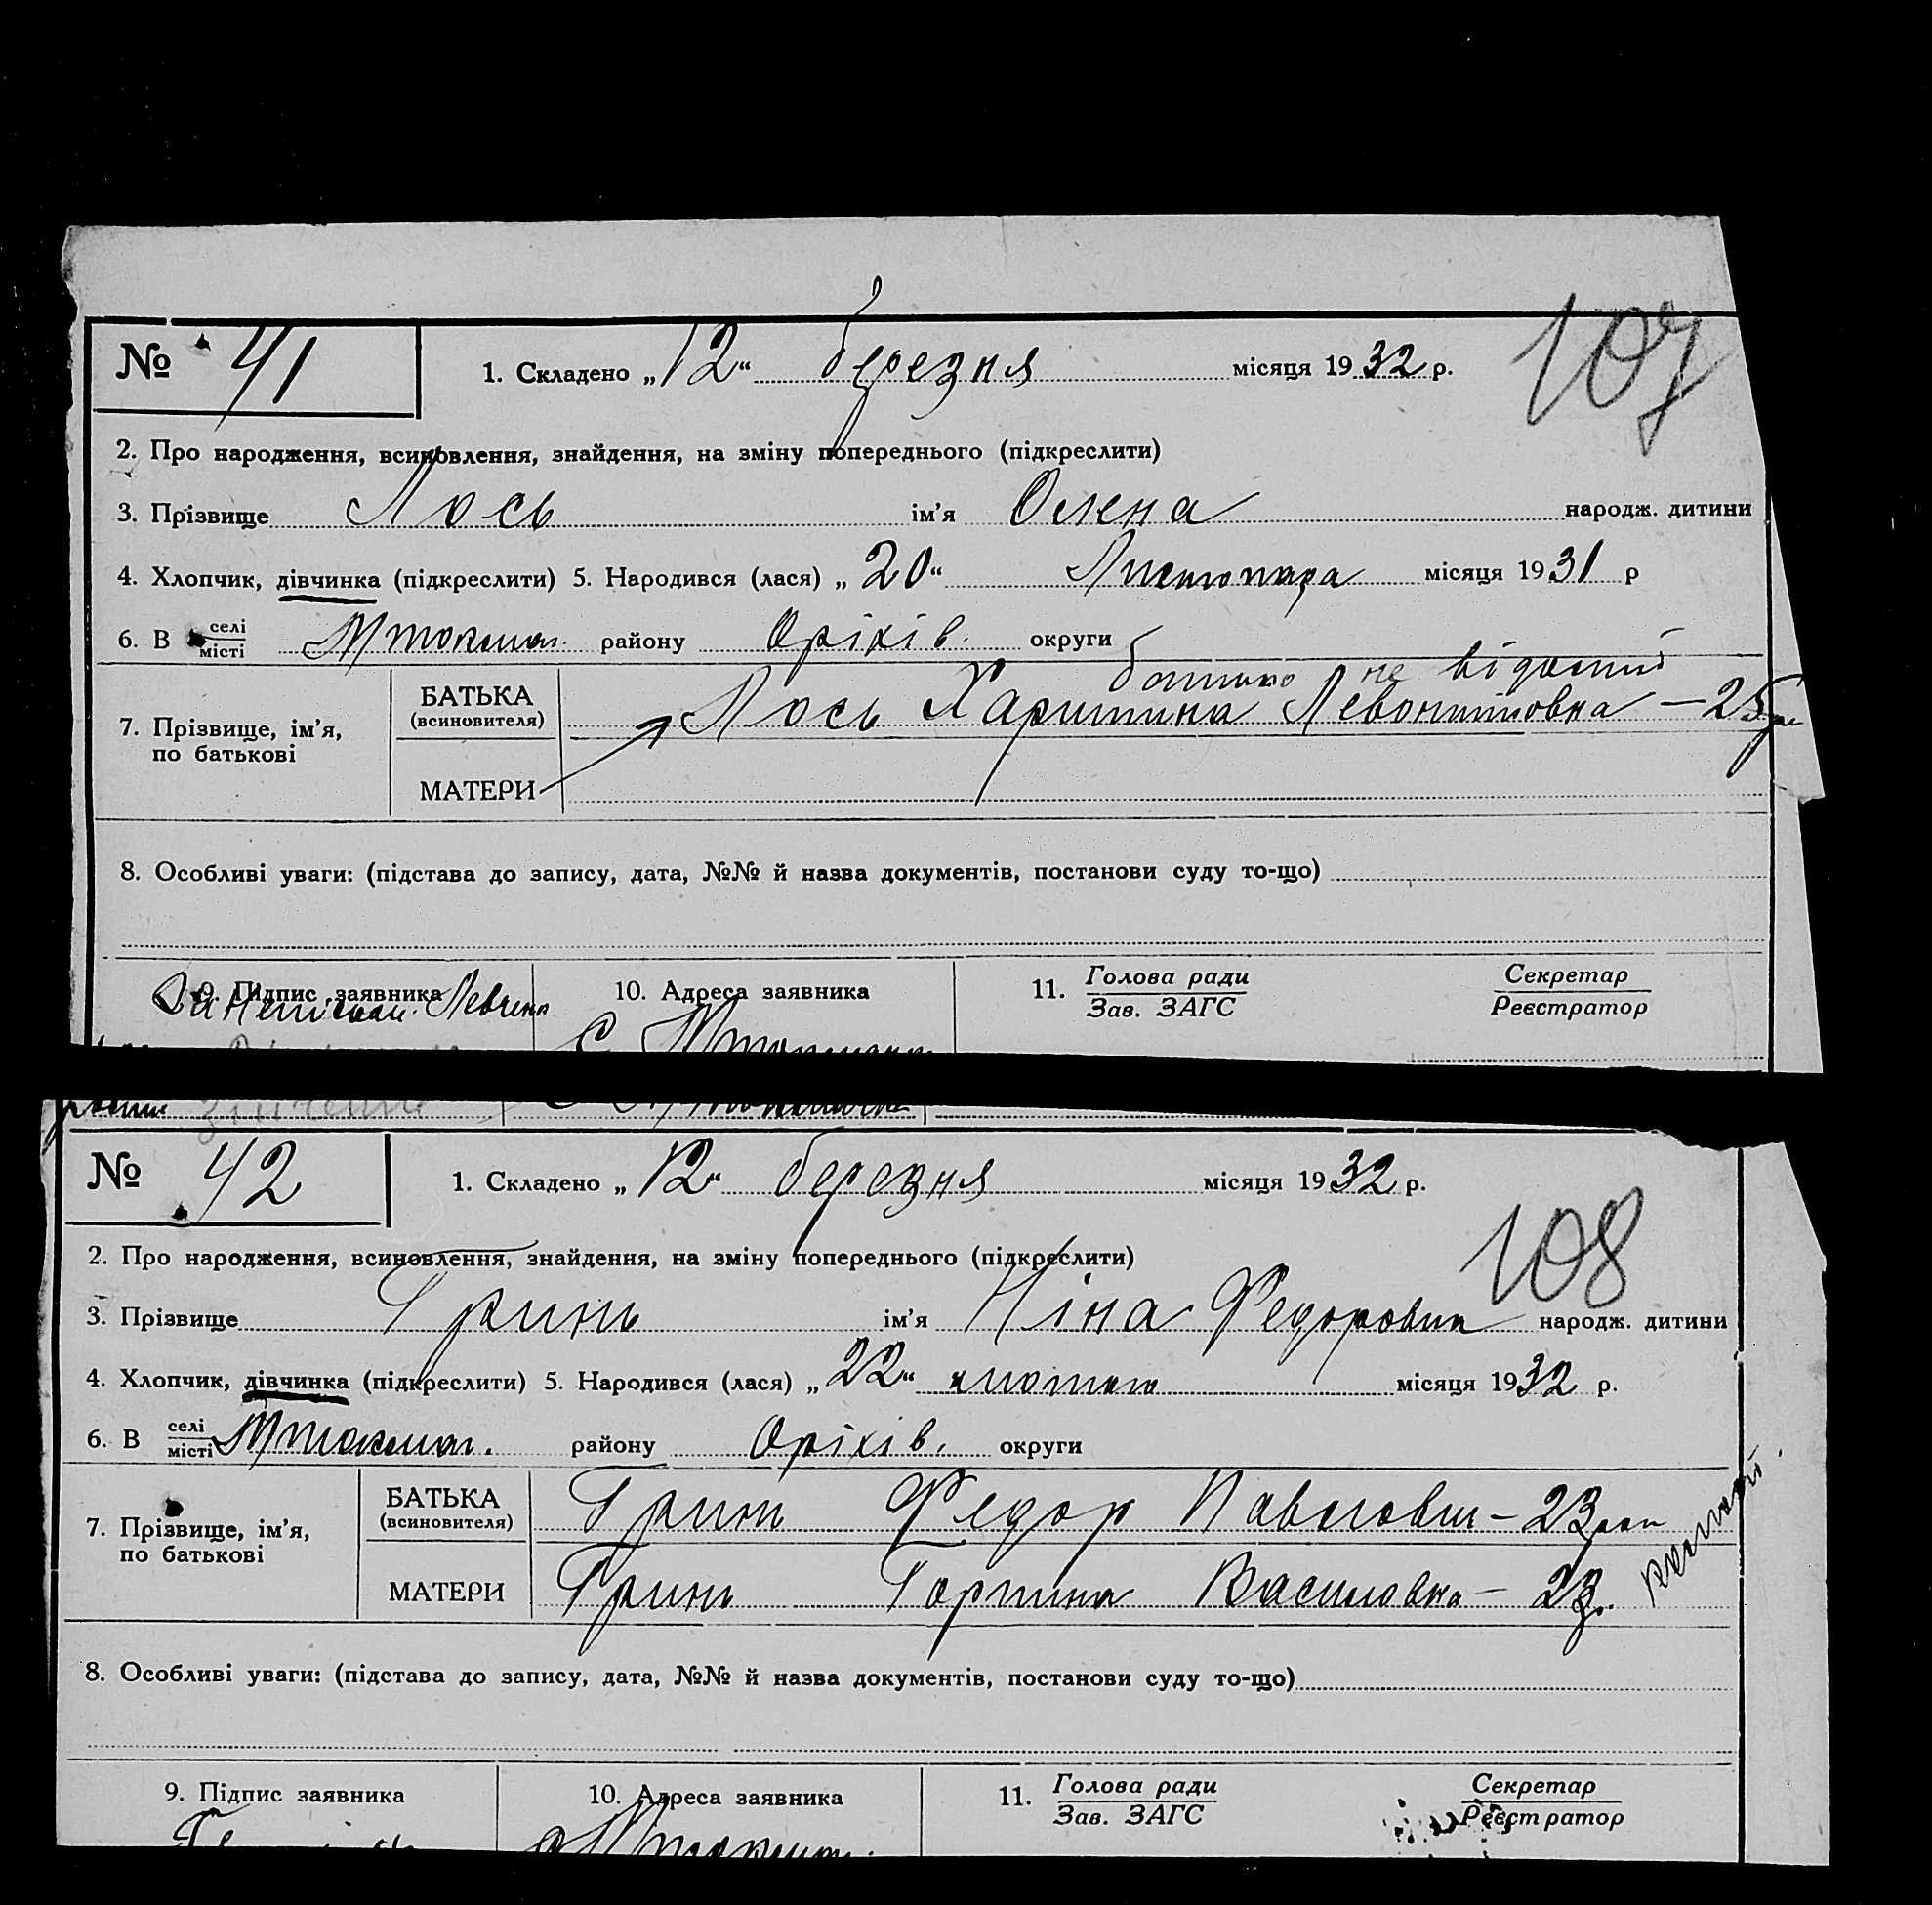 № 41
1. Складено „12“ березня місяця 1932 р.
107
2. Про народження, всиновлення, знайдення, на зміну попереднього (підкреслити)
3. Прізвище Лось ім’я Олена народж. дитини
4. Хлопчик, дівчинка (підкреслити) 5. Народився (лася) „20“ Листопада місяця 1931 р
6. В селі місті Мтокмач. району Оріхів. округи
батько не відомий
7. Прізвище, ім’я, по батькові
БАТЬКА (всиновителя) Лось Харитина Левонтиовна – 25
МАТЕРИ
8. Особливі уваги: (підстава до запису, дата, №№ й назва документів, постанови суду то-що)
9. Підпис заявника 10. Адреса заявника 11. Голова ради Зав. ЗАГС Секретар Реєстратор
Левченко
С.
№ 42
1. Складено „12“ березня місяця 1932 р.
108
2. Про народження, всиновлення, знайдення, на зміну попереднього (підкреслити)
3. Прізвище Гринь ім’я Ніна Федоровна народж. дитини
4. Хлопчик, дівчинка (підкреслити) 5. Народився (лася) „22“ лютого місяця 1932 р.
6. В селі місті Мтокмач. району Оріхів. округи
7. Прізвище, ім’я, по батькові
БАТЬКА (всиновителя) Гринь Федор Павлович – 23
МАТЕРИ Гринь Горпина Василовна – 23.
8. Особливі уваги: (підстава до запису, дата, №№ й назва документів, постанови суду то-що)
9. Підпис заявника 10. Адреса заявника 11. Голова ради Зав. ЗАГС Секретар Реєстратор